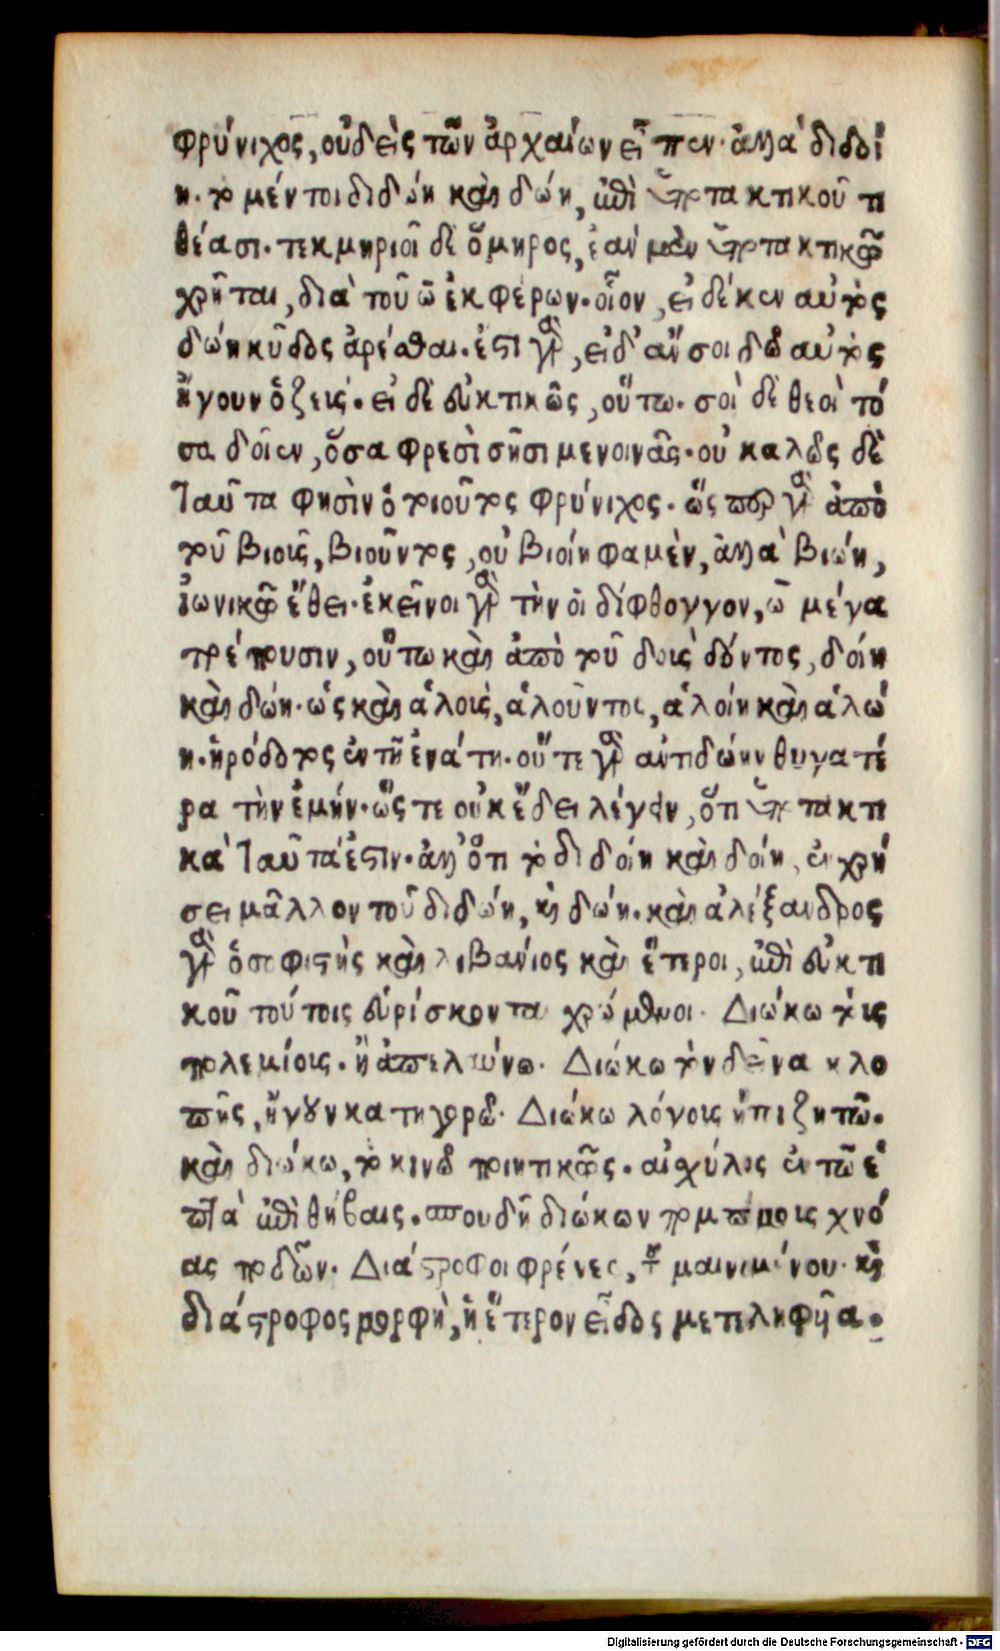 φρύνιχος, οὐδεὶς τῶν ἀρχαίων εἶπεν· ἀλλὰ διδοί
η. τὸ μέντοι διδώη καὶ δώη, ἐπὶ ὑποτακτικοῦ τι
θέασι. τεκμηριοῖ δὲ ὅμηρος, ἐὰν μὲν ὑποτακτικῷ
χρῆται, διὰ τοῦ ῶ ἐκφέρων. οἷον, εἰ δέ κεν αὐτὸς
δώη κῦδος ἀρέσθαι. ἔστι γὰρ, εἰ δ' ἄν σοι δῷ αὐτὸς
ἤγουν ὁ ζεύς. εἰ δὲ εὐκτικῶς, οὕτω. σοὶ δὲ θεοὶ τό
σα δοῖεν, ὅσα φρεσὶ σῇσι μενοινᾷς. οὐ καλῶς δὲ
ταῦτα φησὶν ὁ τοιοῦτος φρύνιχος. ὥσπερ γὰρ ἀπὸ
τοῦ βιοὺς, βιοῦντος, οὐ βιοίη φαμὲν, ἀλλὰ βιώη,
ἰωνικῷ ἔθει. ἐκεῖνοι γὰρ τὴν οι δίφθογγον, ῶ μέγα
τρέπουσιν, οὕτω καὶ ἀπὸ τοῦ δοὺς δόντος, δοίη
καὶ δώη. ὡς καὶ ἁλοὺς, ἁλοῦντος, ἁλοίη καὶ ἁλώ
η. ἡρόδοτος ἐν τῇ ἐνάτῃ. οὔτε γὰρ ἀντιδώην θυγατέ
ρα τὴν ἐμήν. ὥστε οὐκ ἔδει λέγειν, ὅτι ὑποτακτι
κὰ ταῦτά ἐστιν. ἀλλ' ὅτι τὸ διδοίη καὶ δοίη, ἐν χρή
σει μᾶλλον τοῦ διδώη, καὶ δώη. καὶ ἀλέξανδρος
γὰρ ὁ σοφιστὴς καὶ λιβάνιος καὶ ἕτεροι, ἐπὶ εὐκτι
κοῦ τούτοις εὑρίσκονται χρώμενοι. Διώκω τοὺς
πολεμίους. ἢ ἀπελαύνω. Διώκω τὸν δεῖνα κλο
πῆς, ἤγουν κατηγορῶ. Διώκω λόγοις ἢ ἐπιζητῶ.
καὶ διώκω, τὸ κινῶ ποιητικῶς. αἰσχύλος ἐν τῷ ἑ
πτὰ ἐπὶ θήβαις. σπουδῇ διώκων πομπίμοις χνό
ας ποδῶν. Διάστροφοι φρένες, τοῦ μαινομένου. καὶ
διάστροφος μορφὴ, ἡ ἕτερον εἶδος μετειληφυῖα.
Digitalisierung gefördert durch die Deutsche Forschungsgemeinschaft - DFG